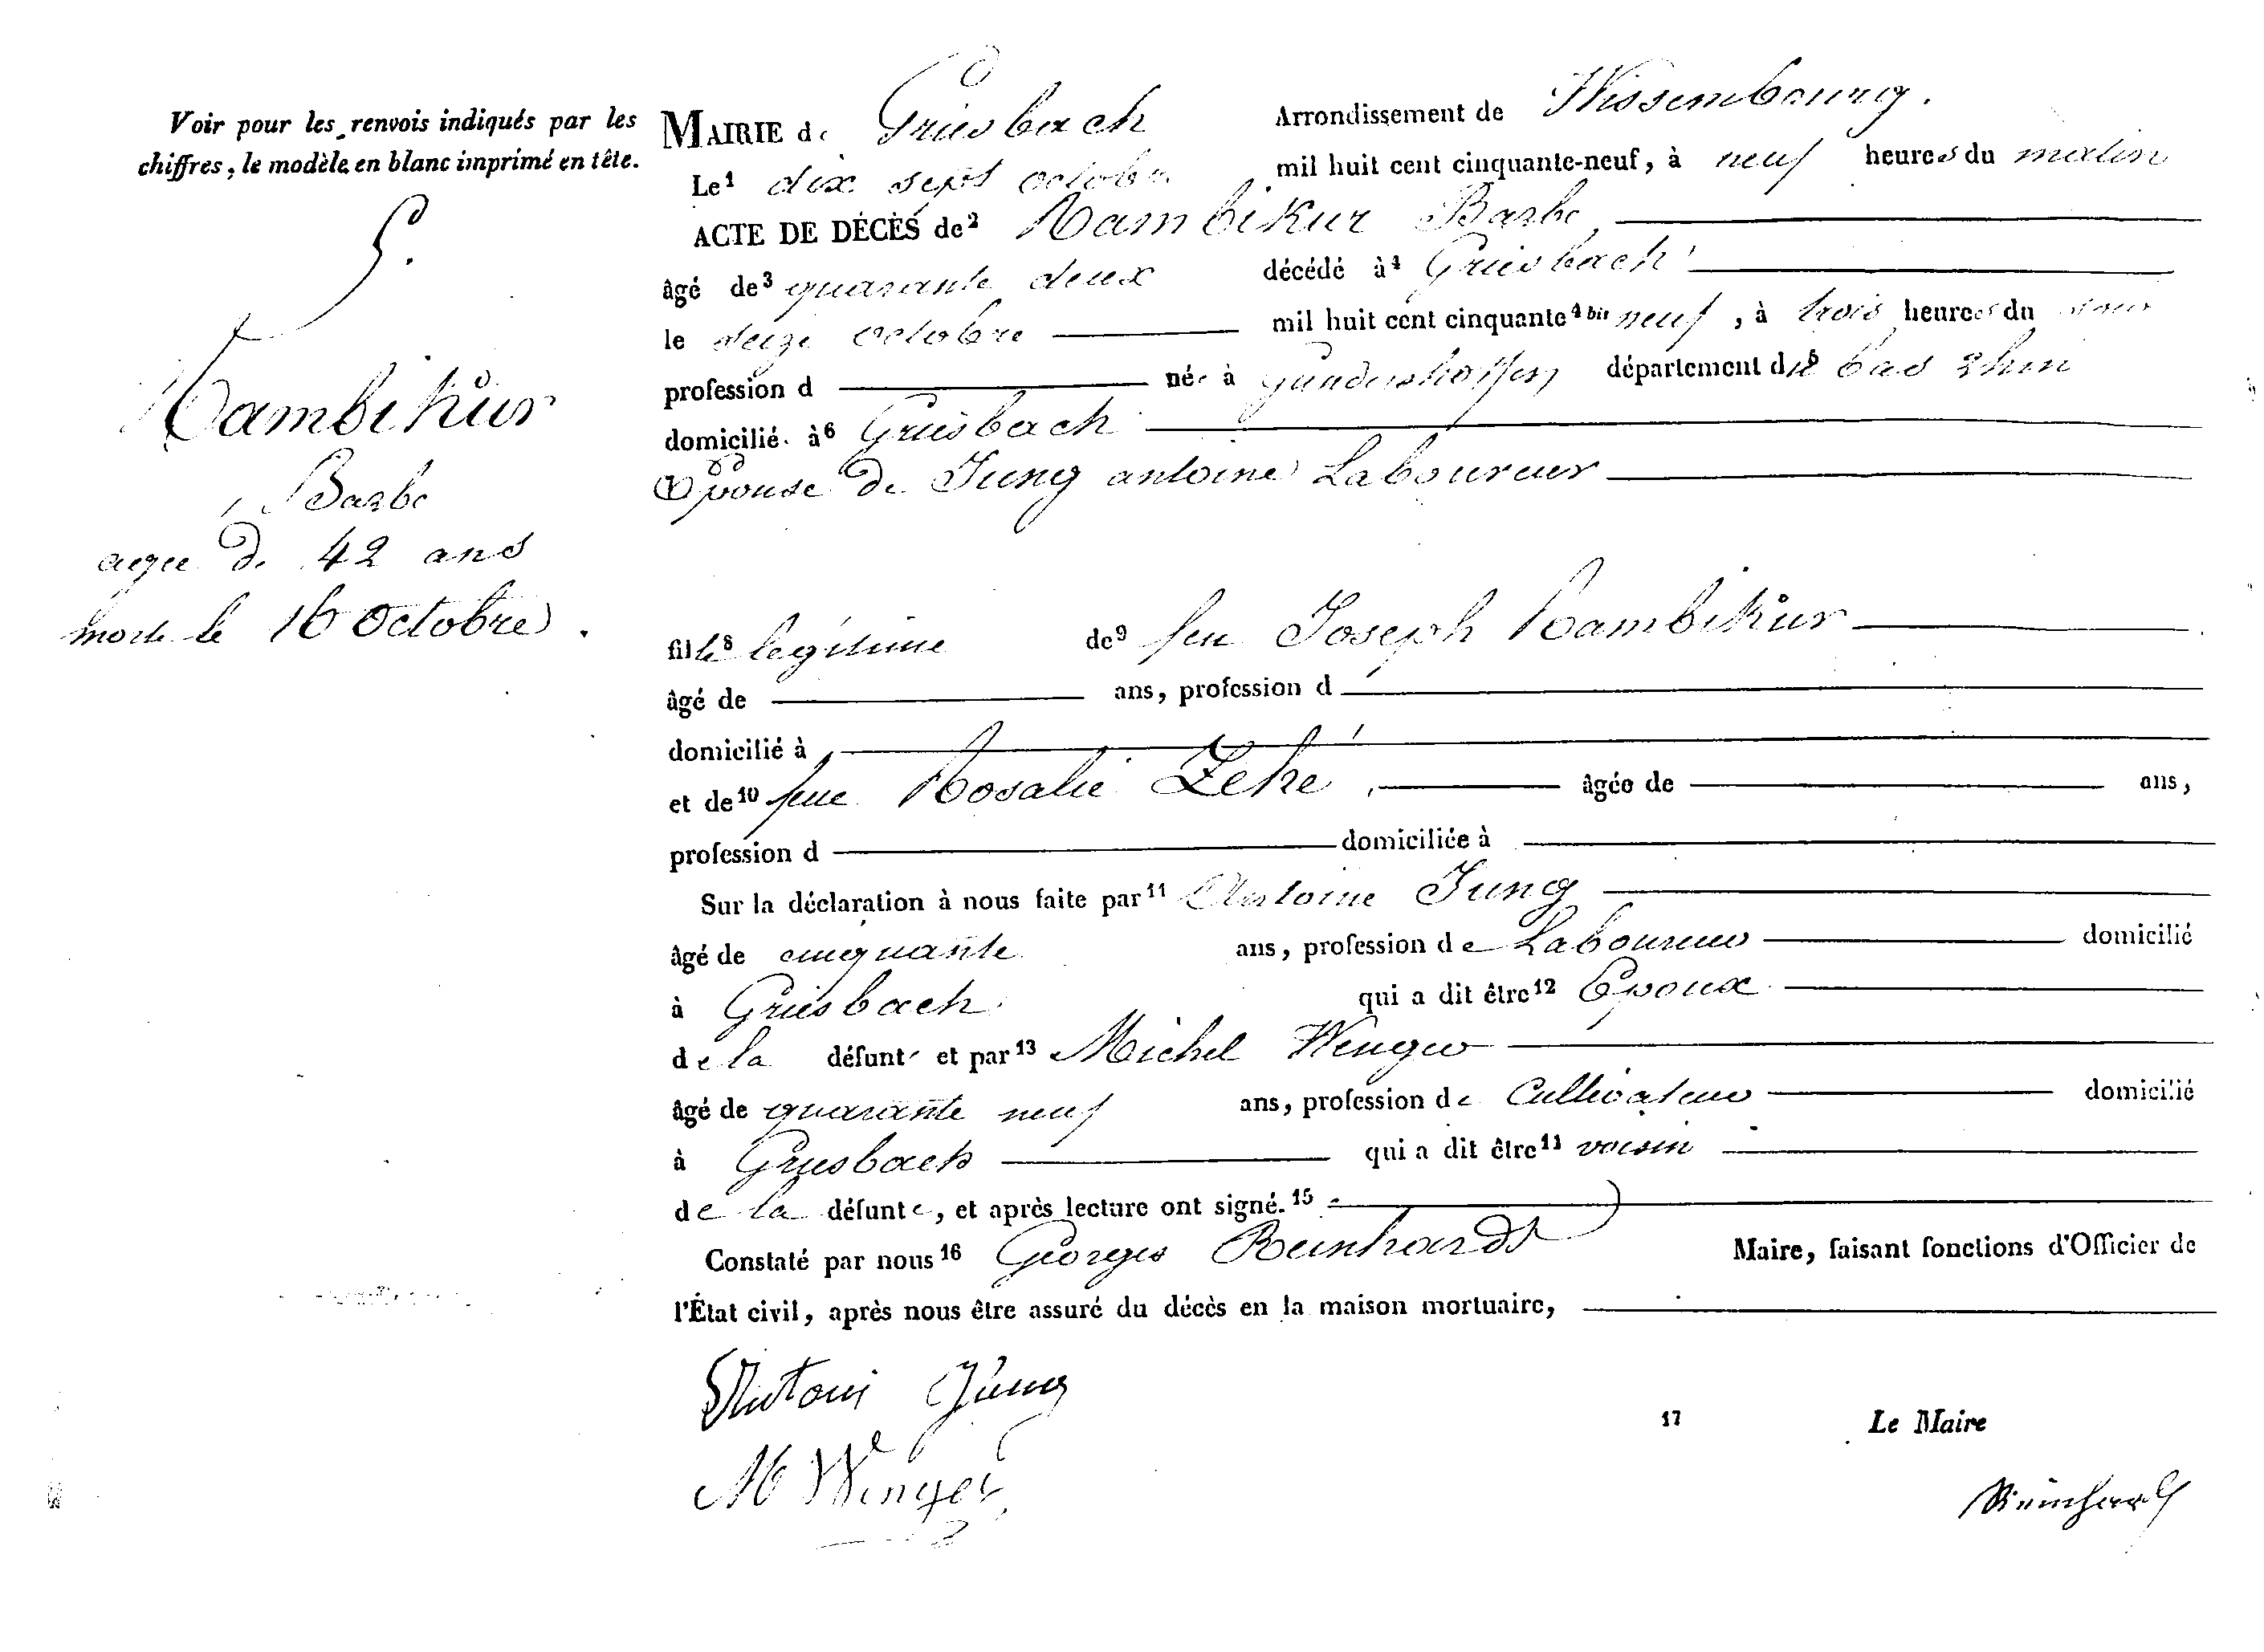 Voir pour les renvois indiqués par les
chiffres, le modèle en blanc imprimé en tête.
5.
Rambikür
Barbe
agee de 42 ans
morte le 16 Octobre.
MAIRIE de Griesbach Arrondissement de Wissembourg.
Le 1 dix sept octobre mil huit cent cinquante-neuf, à neuf heures du matin
ACTE DE DÉCÈS de 2 Rambikur Barbe
âgé de 3 quarante deux décédé à 4 Griesbach
le seize octobre mil huit cent cinquante 4 bis neuf, à trois heures du soir
profession d née à Gundershoffen département du 5 bas Rhin
domicilié à 6 Griesbach
Epouse de Jung antoine Laboureur
fille 8 légitime de 9 feu Joseph Rambikür
âgé de ans, profession d
domicilié à
et de 10 feue Rosalie Zeké âgée de ans,
profession d domiciliée à
Sur la déclaration à nous faite par 11 Antoine Jung
âgé de cinquante ans, profession de Laboureur domicilié
à Griesbach qui a dit être 12 Epoux
de la défunte et par 13 Michel Wenger
âgé de quarante neuf ans, profession de Cultivateur domicilié
à Griesbach qui a dit être 14 voisin
de la défunte, et après lecture ont signé. 15
Constaté par nous 16 Georges Reinhardt Maire, faisant fonctions d'Officier de
l'État civil, après nous être assuré du décès en la maison mortuaire,
Antoni Jung
17 Le Maire
M Wenger
Reinhard